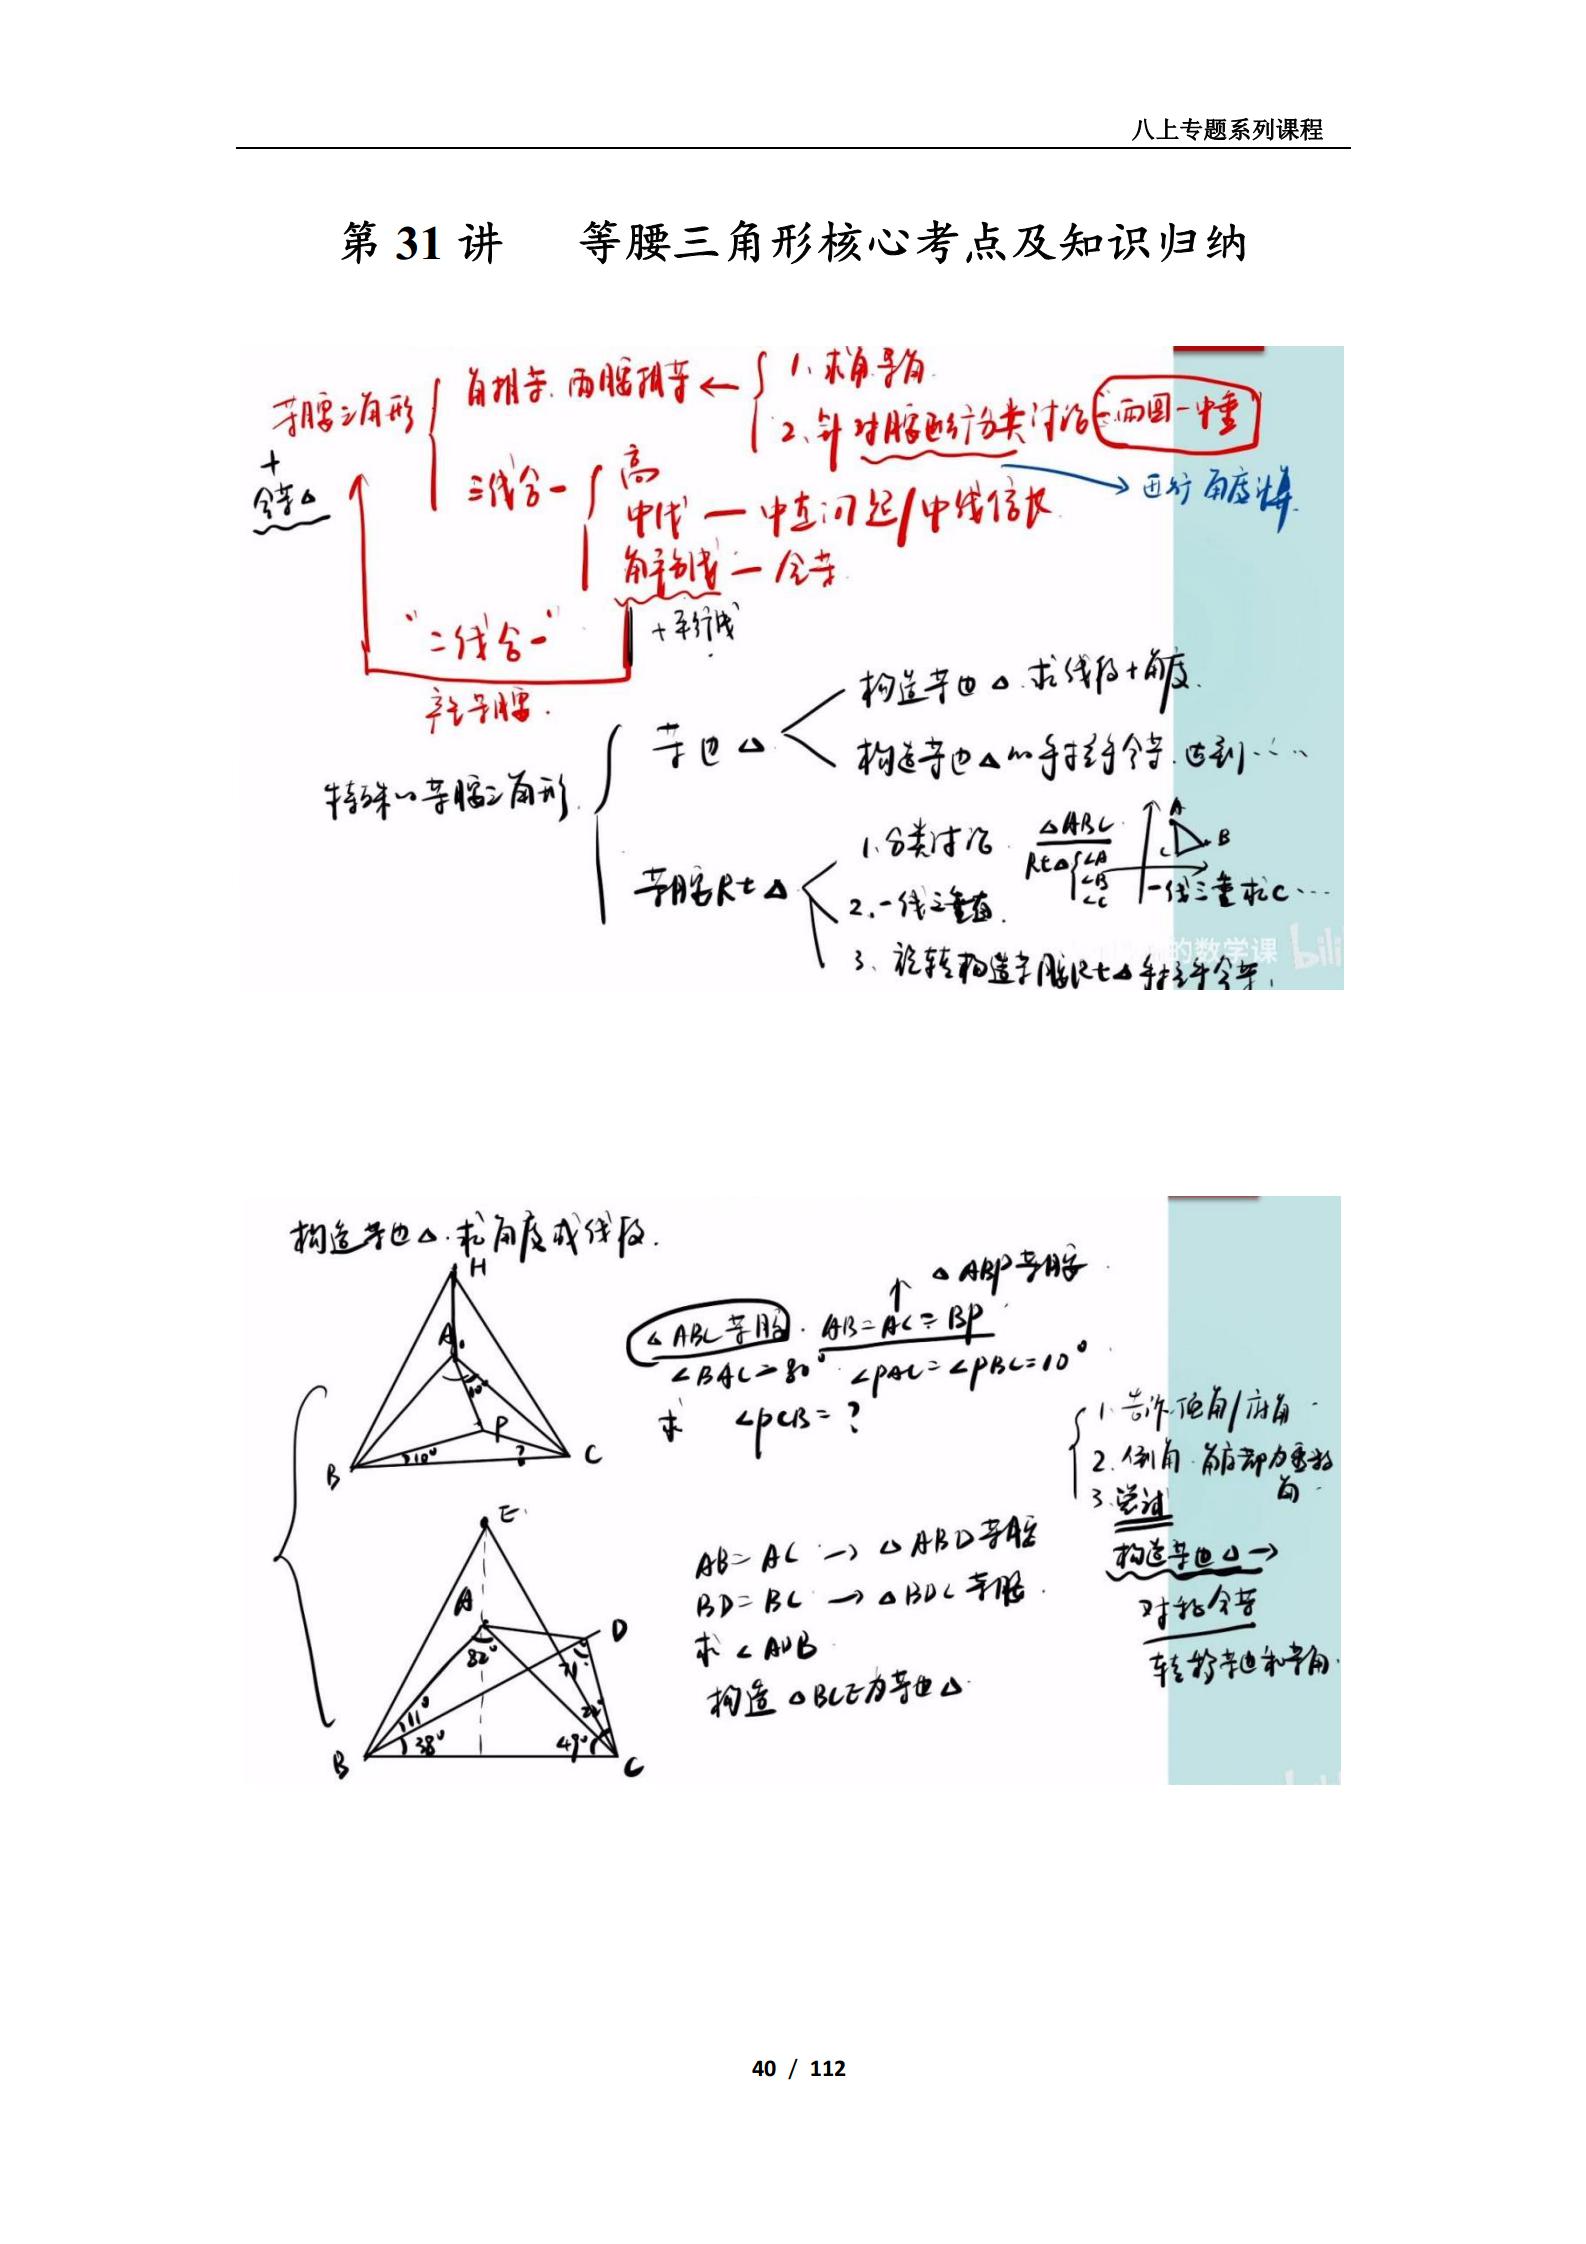 八上专题系列课程
第 31 讲 等腰三角形核心考点及知识归纳
等腰三角形
+
全等△
角相等.两腰相等
1、求角.导角.
2、针对腰进行分类讨论-两圆一中垂
进行角度计算.
三线合一
高
中线 — 中点问题/中线倍长
角平分线 — 全等.
"二线合一"
+平行线
等腰.
特殊的等腰三角形.
等边△
构造等边△.求线段+角度.
构造等边△的手拉手全等.达到……
等腰Rt△
1、分类讨论.
△ABC
Rt△
∠A
∠B
∠C
A
B
C
2.一线三垂直.
一线三垂求C…
3、旋转构造等腰Rt△手拉手全等.
的数学课 bili
构造等边△.求角度或线段.
H
A
10°
P
B
10°
?
C
△ABP等腰.
△ABC等腰. AB=AC=BP
∠BAC=80° ∠PAC=∠PBC=10°.
求 ∠PCB=?
1.告诉顶角/底角.
2.倒角.角度都为
3.尝试
构造等边△→
对称全等
转移等边和等角.
E
A
82°
D
71°
B
11°
38°
22°
49°
C
AB=AC → △ABD等腰
BD=BC → △BDC等腰.
求∠ADB.
构造△BCE为等边△.
40 / 112